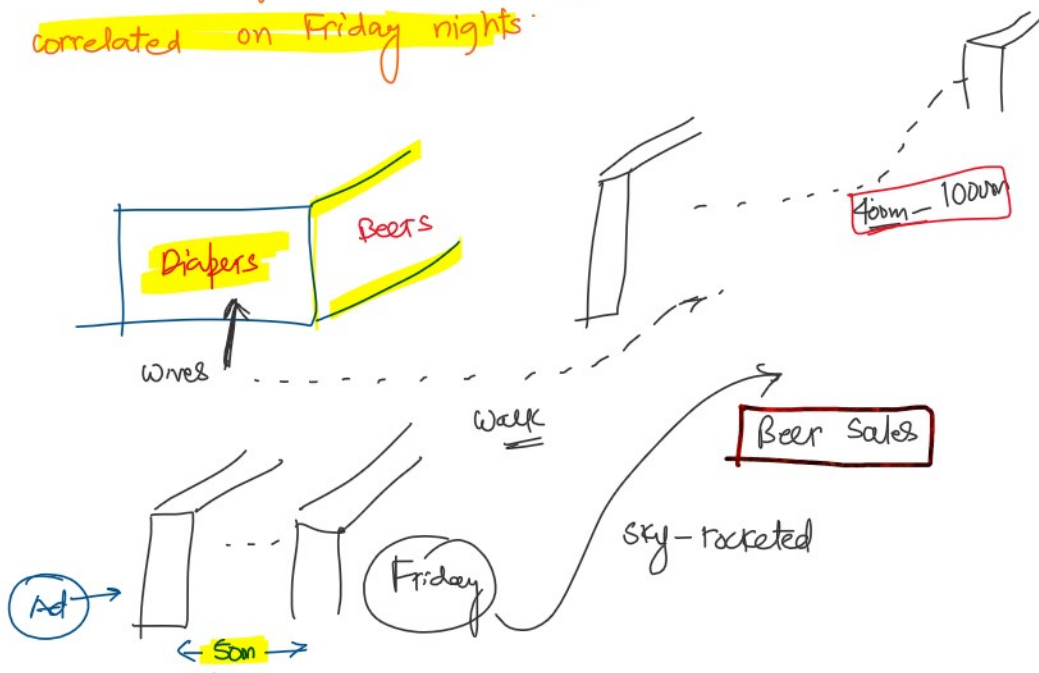 correlated on Friday nights.
Beers
Diapers
400m - 1000m
wives
Walk
Beer Sales
sky-rocketed
Friday
Ad
50m